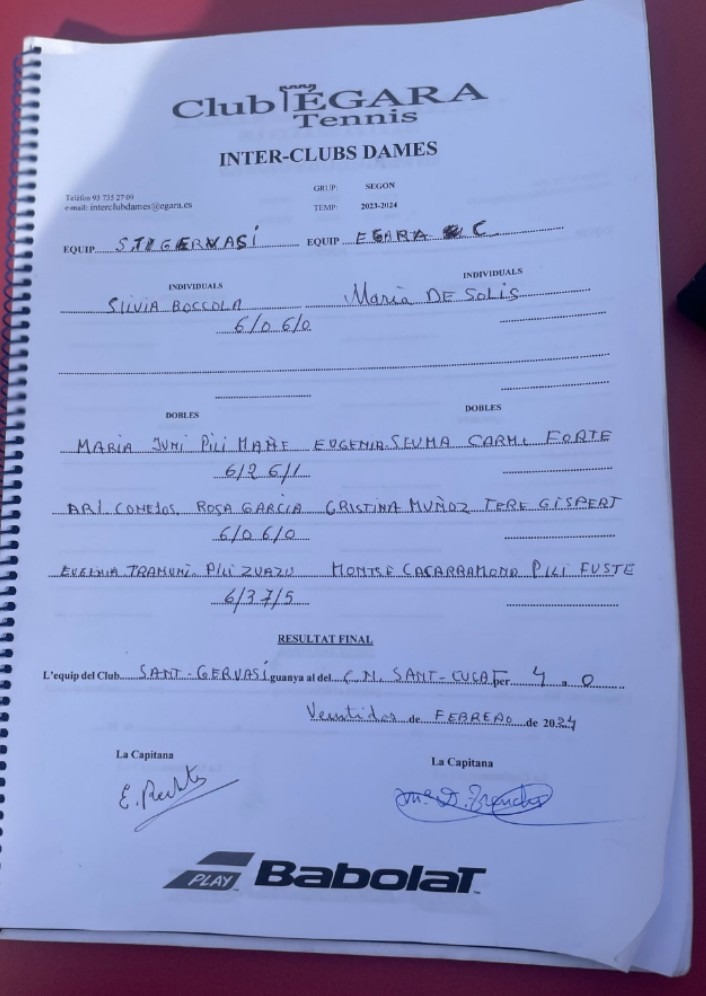 Club EGARA
Tennis
INTER-CLUBS DAMES
GRUP: SEGON
Telèfon 93 735 27 09
e-mail: interclubdames@egara.es
TEMP: 2023-2024
EQUIP STGERVASÍ EQUIP EGARA C
INDIVIDUALS INDIVIDUALS
SILVIA BOCCOLA Maria DE SOLIS
6/0 6/0
DOBLES DOBLES
MARIA JUNI PILI MAÑE EUGENIA SEUMA CARME FORTE
6/2 6/1
ARI CONEJOS, ROSA GARCIA CRISTINA MUÑOZ TERE GISPERT
6/0 6/0
EUGENIA TRAMUNI. PILI ZUAZU MONTSE CACARRAMONA PILI FUSTE
6/3 7/5
RESULTAT FINAL
L'equip del Club SANT-GERVASÍ guanya al del C.N. SANT-CUGAT per 4 a 0
Veintidos de FEBRERO de 2024
La Capitana La Capitana
PLAY Babolat